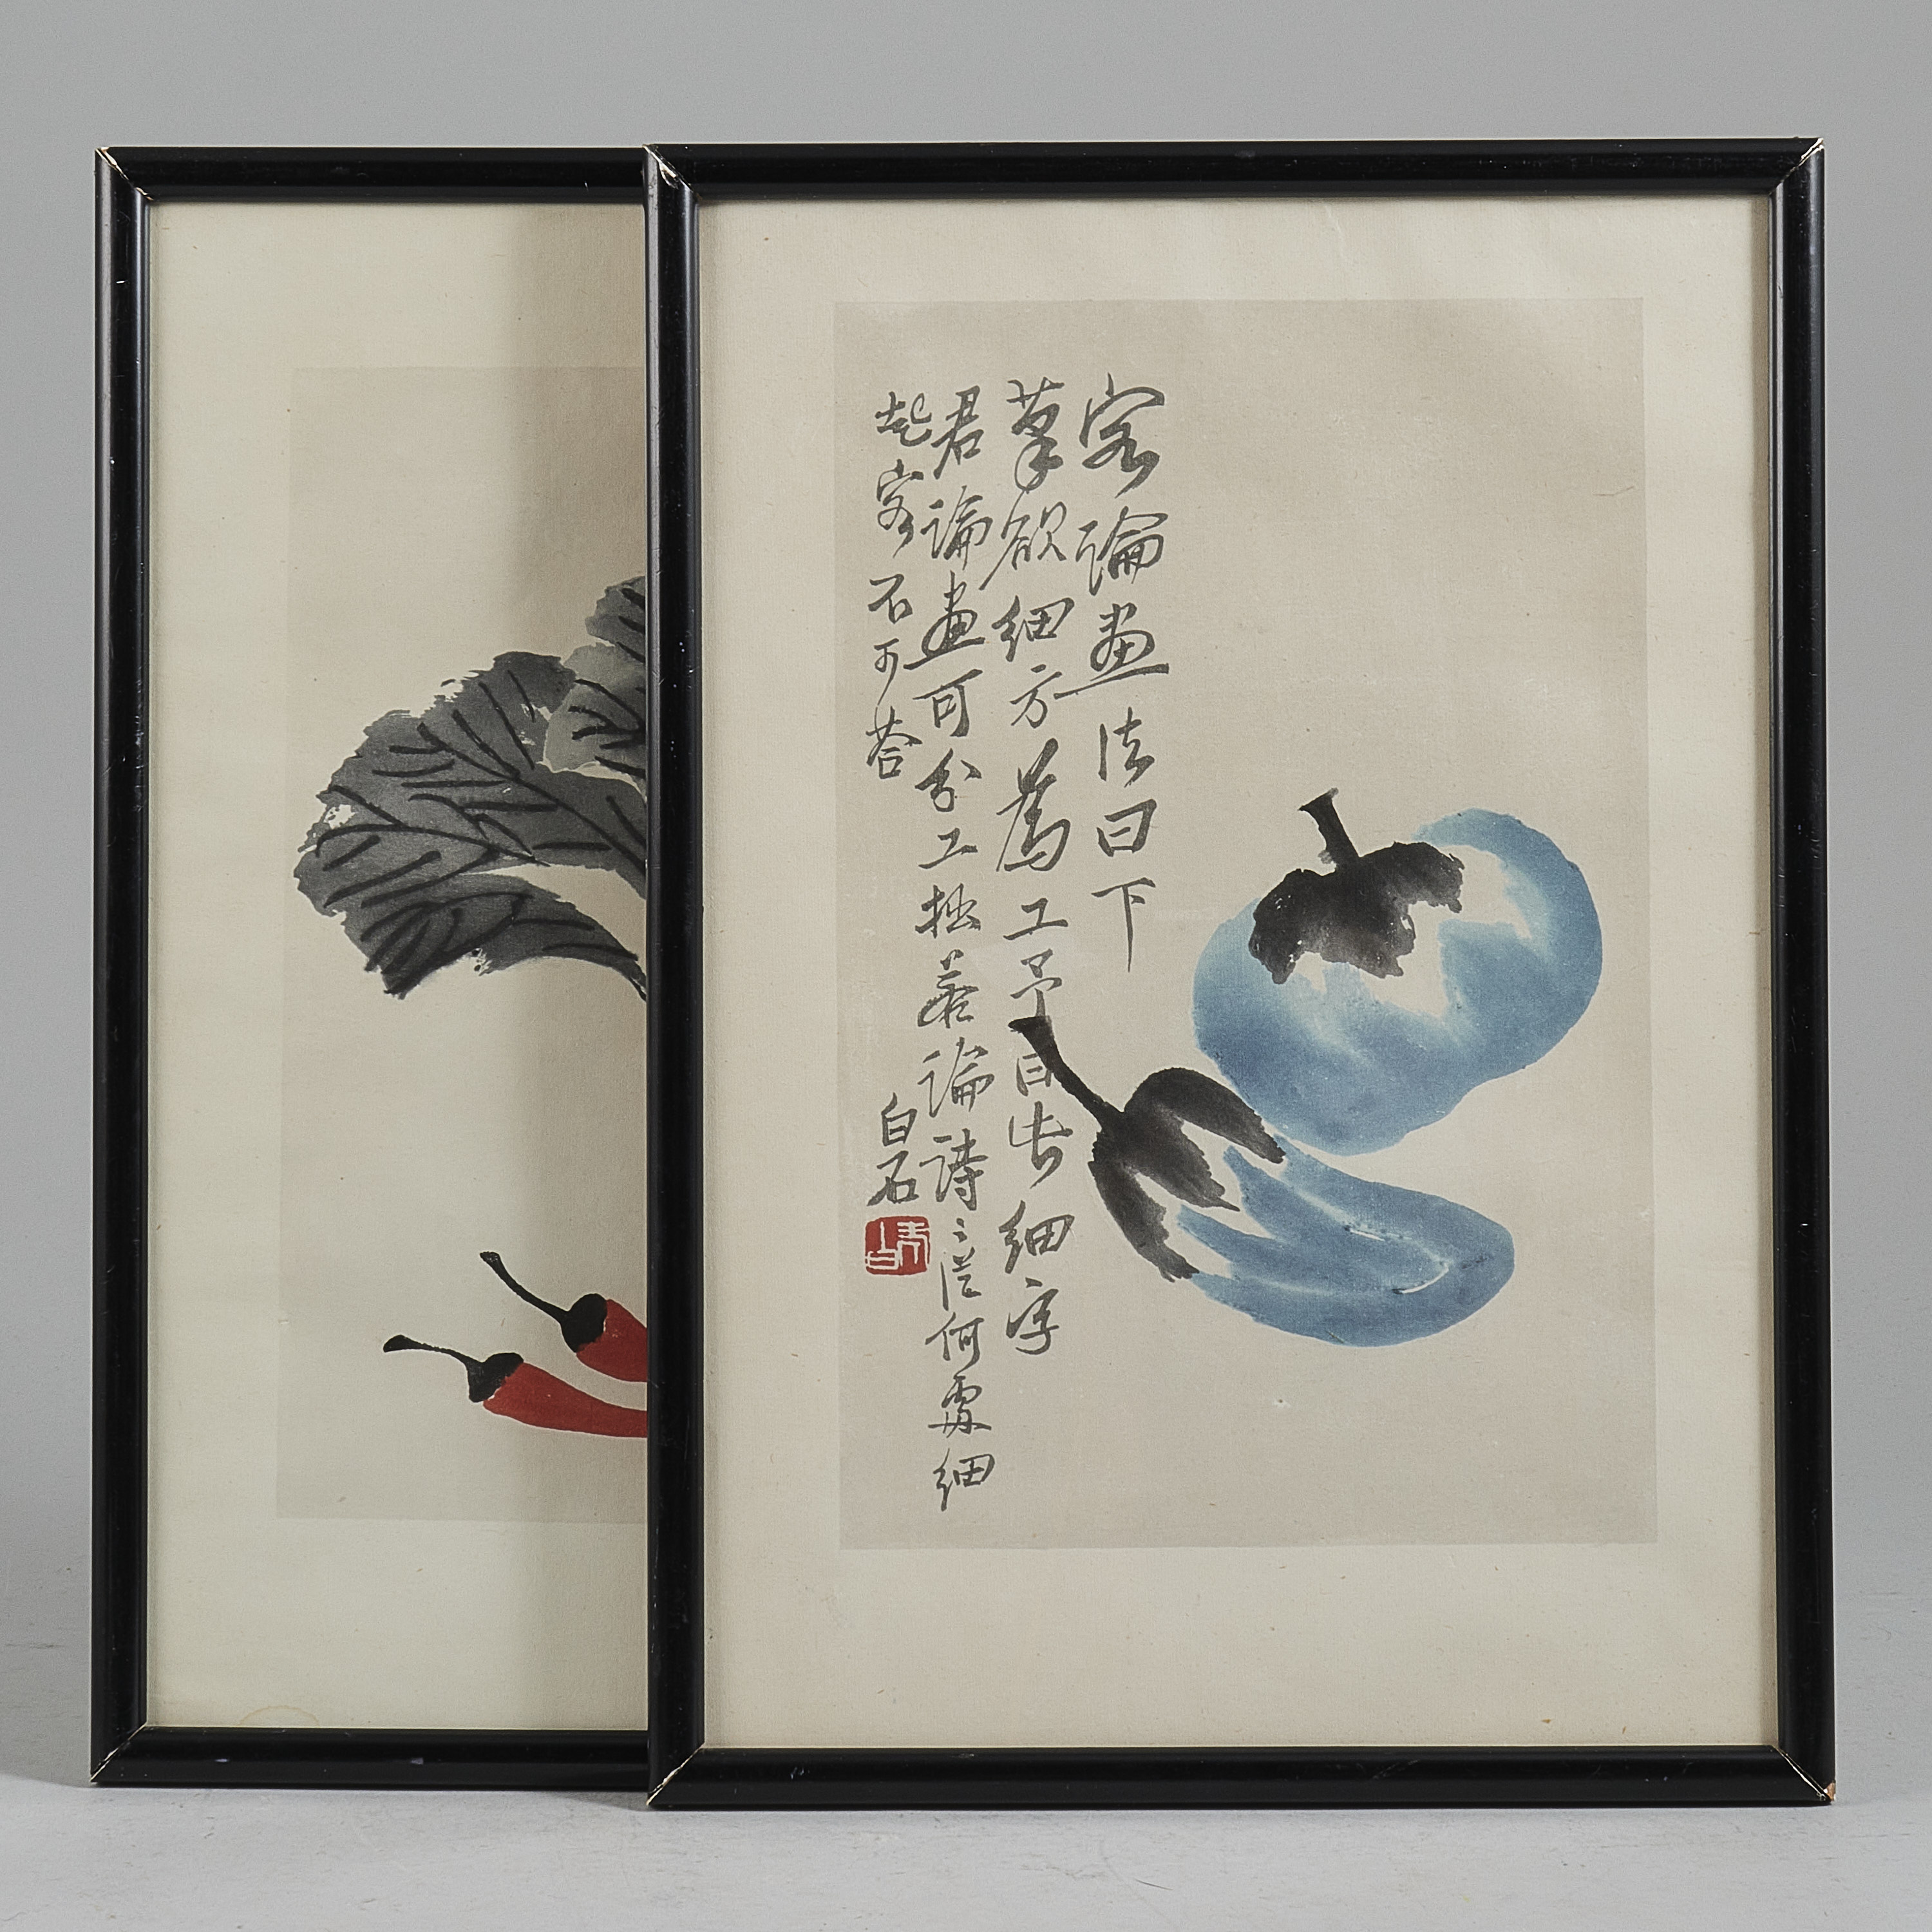 客論畫法曰下
筆欲細方為工予自細字
君論畫可分工拙若論詩〻從何處細
起客不可答
白石